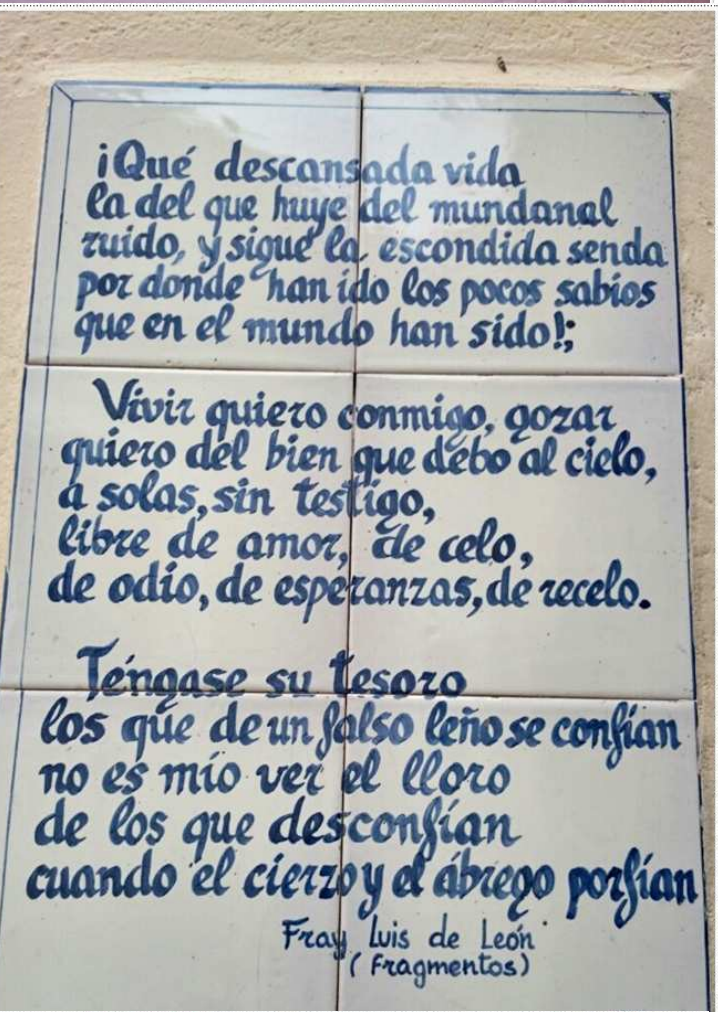 ¡Qué descansada vida
la del que huye del mundanal
ruido, y sigue la escondida senda
por donde han ido los pocos sabios
que en el mundo han sido!;
Vivir quiero conmigo, gozar
quiero del bien que debo al cielo,
a solas, sin testigo,
libre de amor, de celo,
de odio, de esperanzas, de recelo.
Téngase su tesoro
los que de un falso leño se confían
no es mío ver el lloro
de los que desconfían
cuando el cierzo y el ábrego porfían
Fray Luis de León
(Fragmentos)